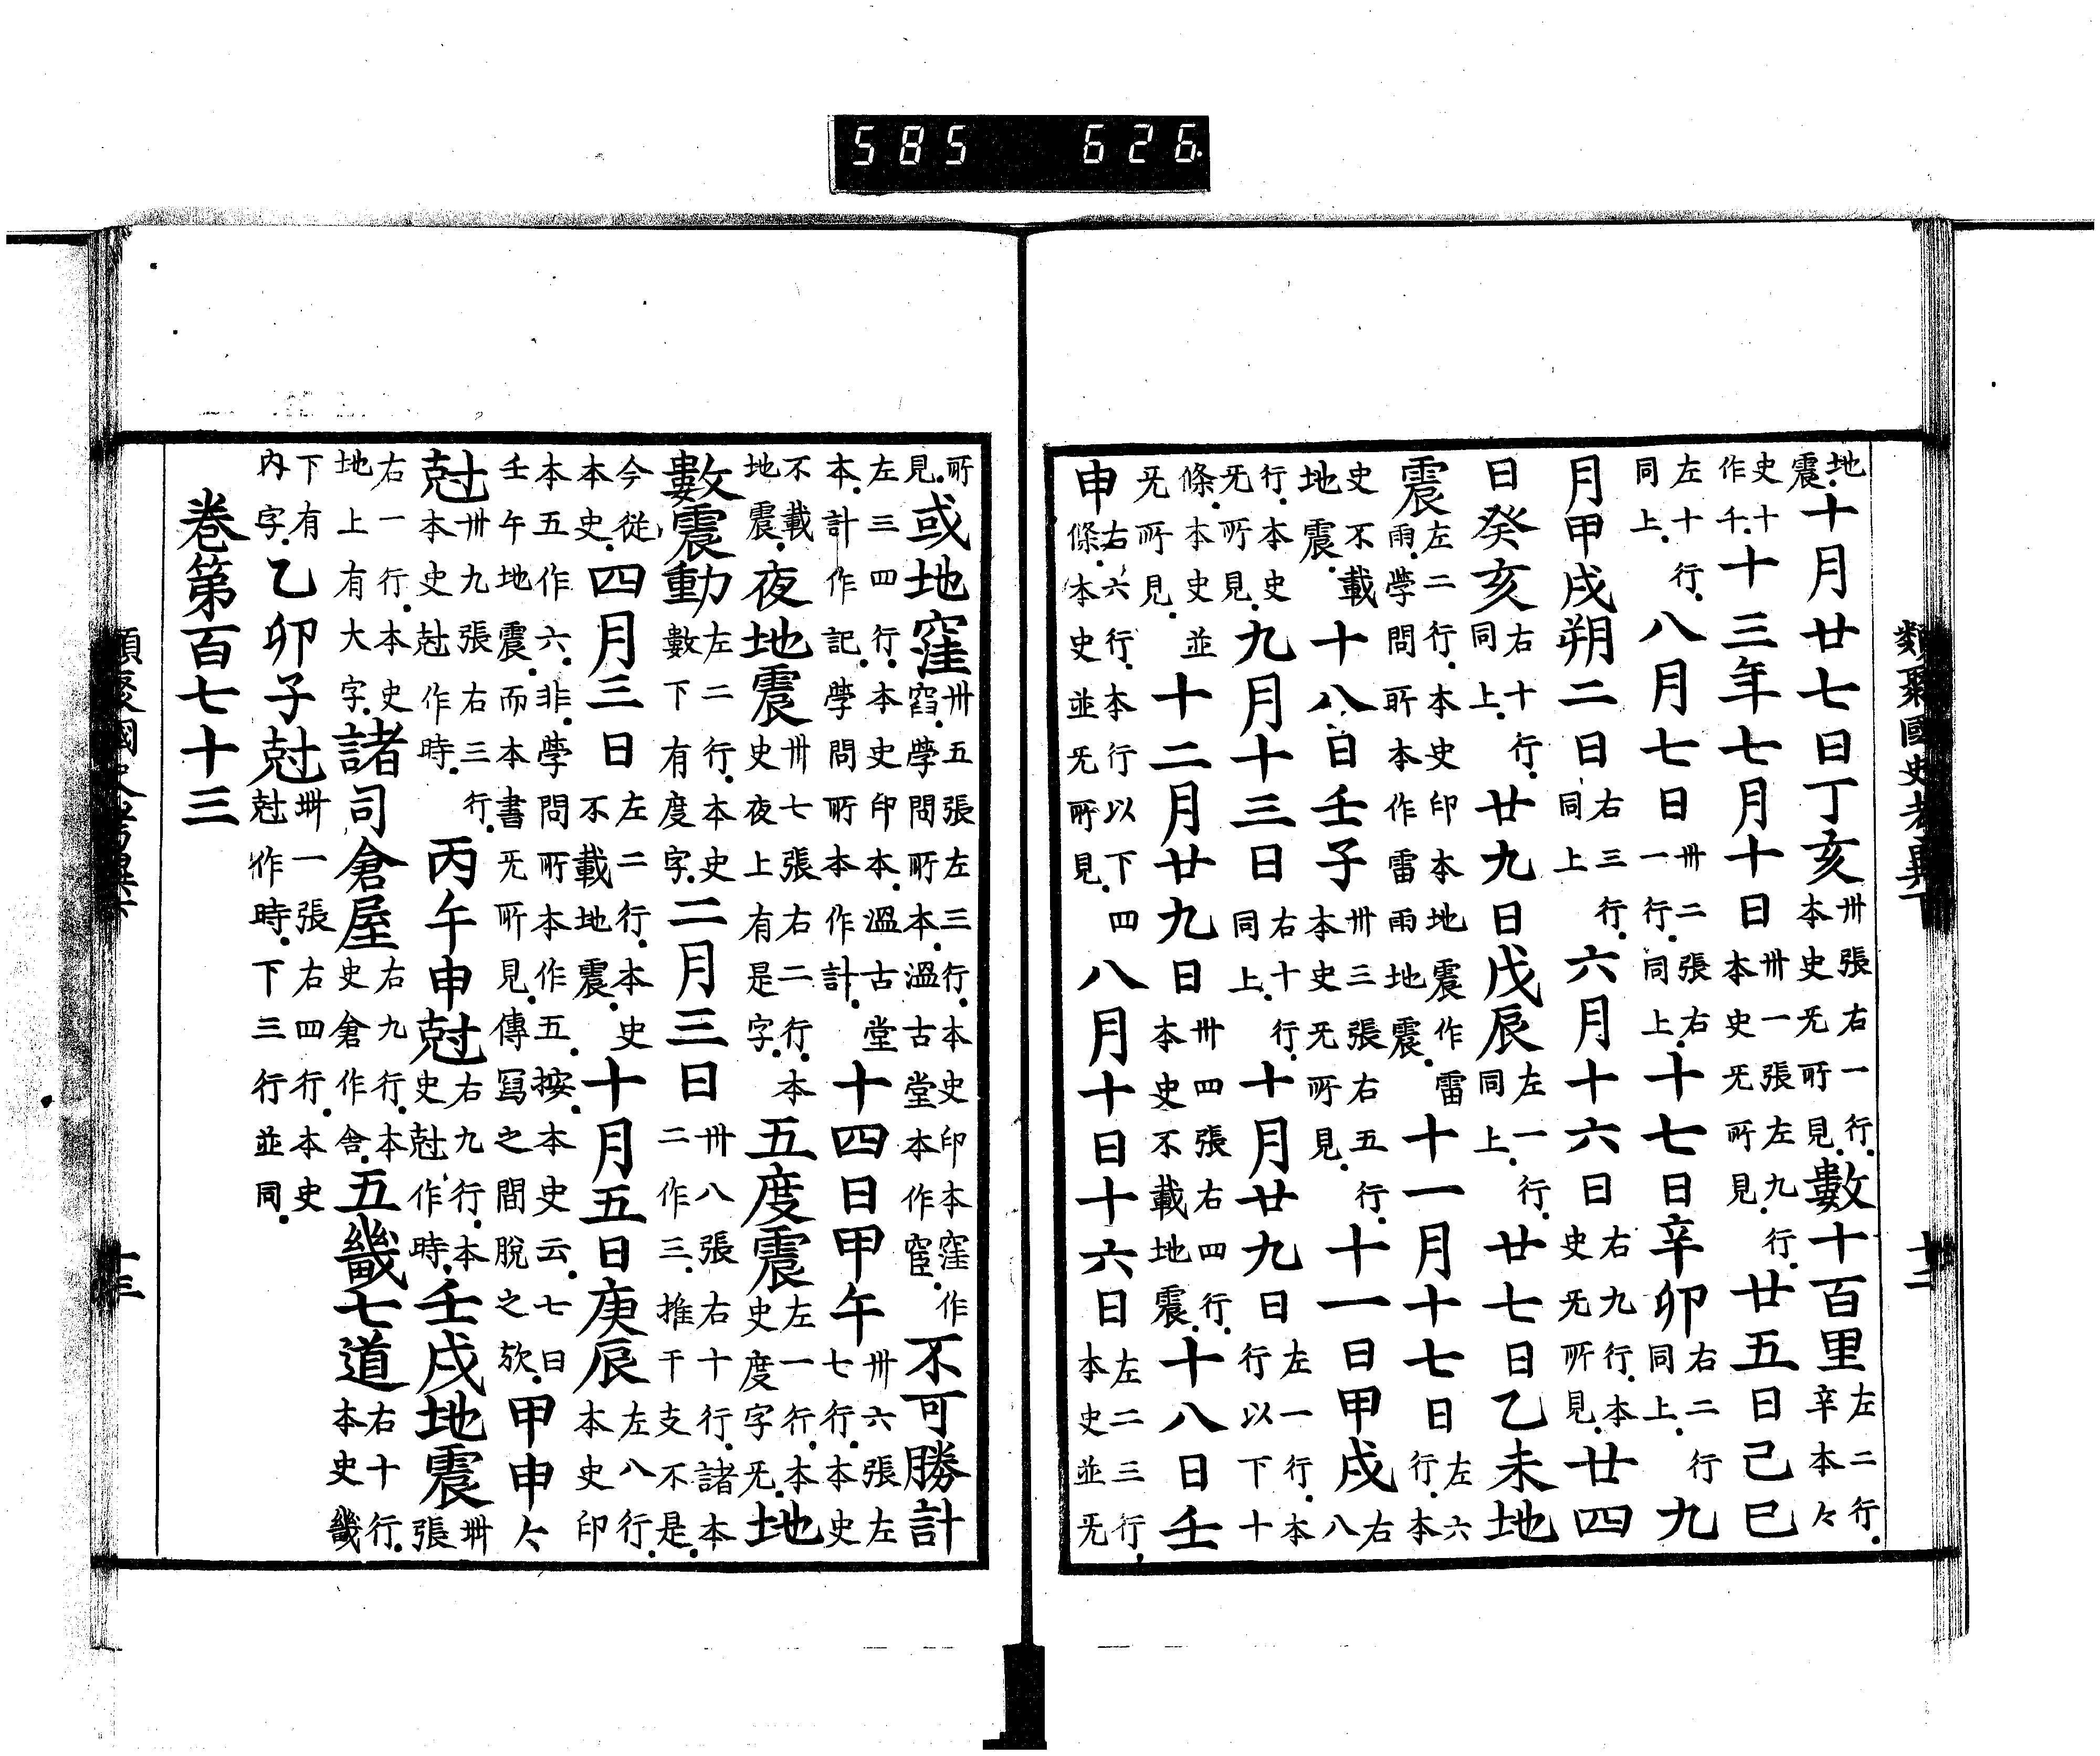 585 626
類聚國史考異
十二
地震十月廿七日丁亥卅張右一行本史无所見數十百里左二行辛本々
史十作千十三年七月十日卅一張左九行本史无所見廿五日己巳
左十行同上八月七日卅二張右一行同上十七日辛卯右二行同上九
月甲戌朔二日右三行同上六月十六日右九行本史无所見廿四
日癸亥右十行同上廿九日戊辰左一行同上廿七日乙未地
震左二行本史印本地震作雷雨學問所本作雷雨地震十一月十七日左六行本
史不載地震十八日壬子卅三張右五行本史无所見十一日甲戌右八
行本史无所見九月十三日右十行同上十月廿九日左一行本行以下十
條本史並无所見十二月廿九日卅四張右四行本史不載地震十八日壬
申右六行本行以下四條本史並无所見八月十日十六日左二三行本史並无
所見或地窪卅五張左三行本史印本窪作窞學問所本溫古堂本作窪不可勝計
左三四行本史印本溫古堂本計作記學問所本作計十四日甲午卅六張左七行本史
不載地震夜地震卅七張右二行本史夜上有是字五度震左一行本史度字无地
數震動左二行本史數下有度字二月三日卅八張右十行諸本二作三推干支不是
今從本史四月三日左二行本史不載地震十月五日庚辰左八行本史印
本五作六非學問所本作五按本史云七日壬午地震而本書无所見傳寫之間脫之欤甲申々
尅卅九張右三行本史尅作時丙午申尅右九行本史尅作時壬戌地震卌張
右一行本史地上有大字諸司倉屋右九行本史倉作舍五畿七道右十行本史畿
下有内字乙卯子尅卌一張右四行本史尅作時下三行並同
卷第百七十三
十三